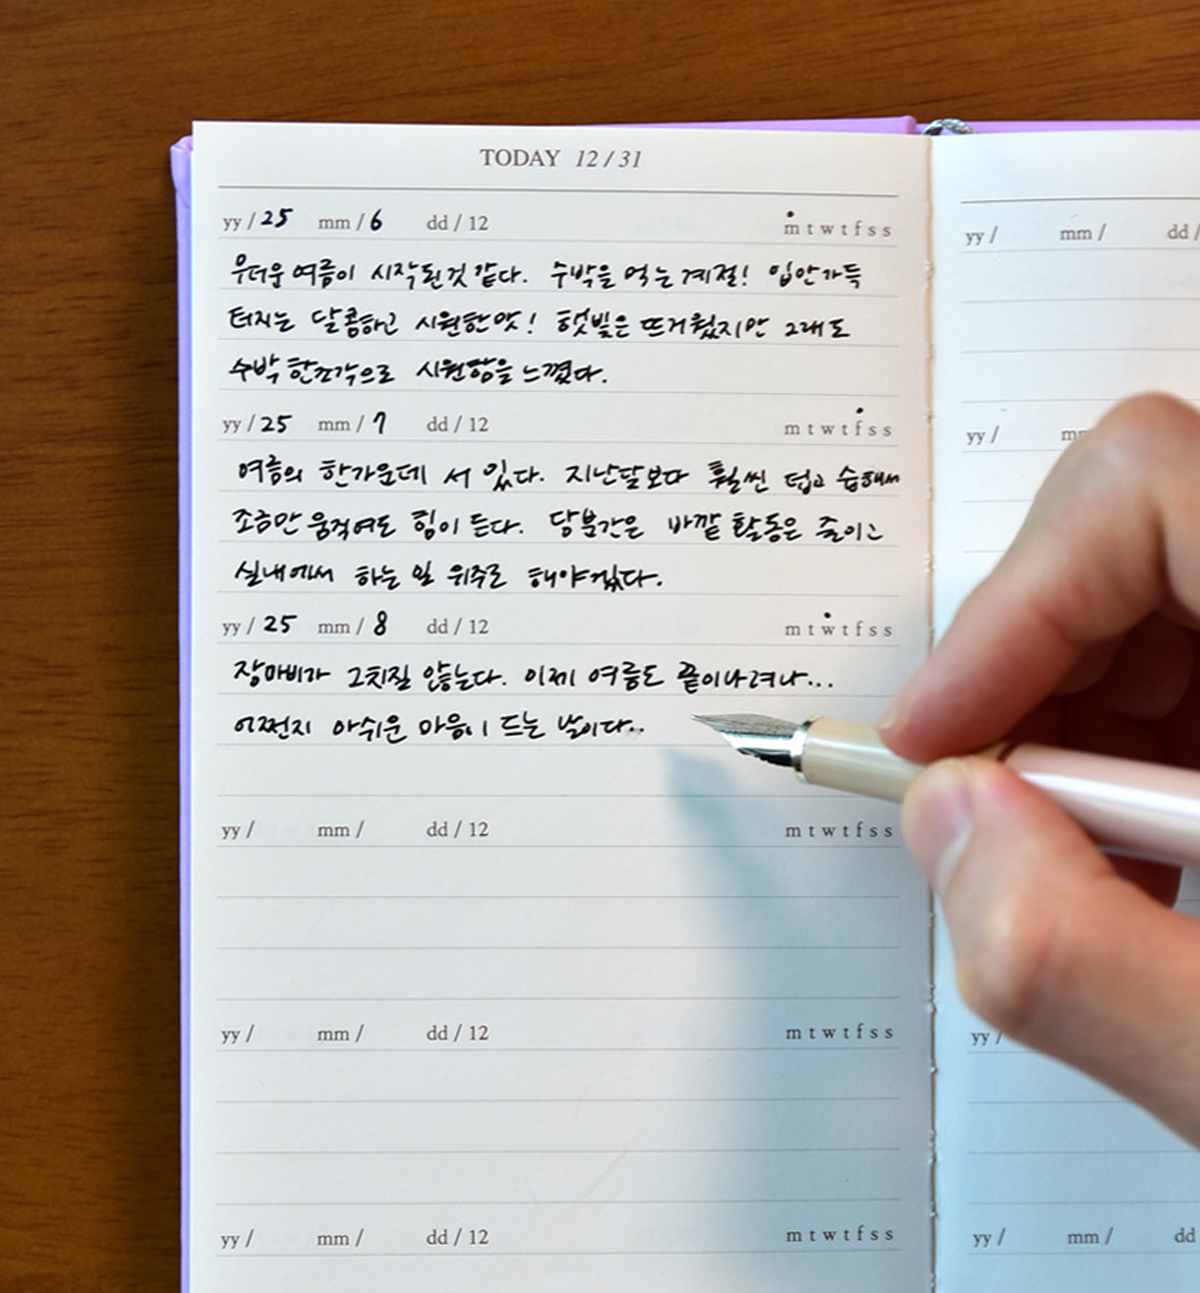 TODAY 12/31
yy / 25 mm / 6 dd / 12 m t w t f s s
무더운 여름이 시작된것 같다. 수박을 먹는 계절! 입안가득
터지는 달콤하고 시원한맛! 햇빛은 뜨거웠지만 그래도
수박 한조각으로 시원함을 느꼈다.
yy / 25 mm / 7 dd / 12 m t w t f s s
여름의 한가운데 서 있다. 지난달보다 훨씬 덥고 습해서
조금만 움직여도 힘이 든다. 당분간은 바깥 활동은 줄이고
실내에서 하는 일 위주로 해야겠다.
yy / 25 mm / 8 dd / 12 m t w t f s s
장마비가 그치질 않는다. 이제 여름도 끝이나려나...
어쩐지 아쉬운 마음이 드는 날이다..
yy / mm / dd / 12 m t w t f s s
yy / mm / dd / 12 m t w t f s s
yy / mm / dd / 12 m t w t f s s
yy / mm / dd /
yy /
yy /
yy / mm / dd